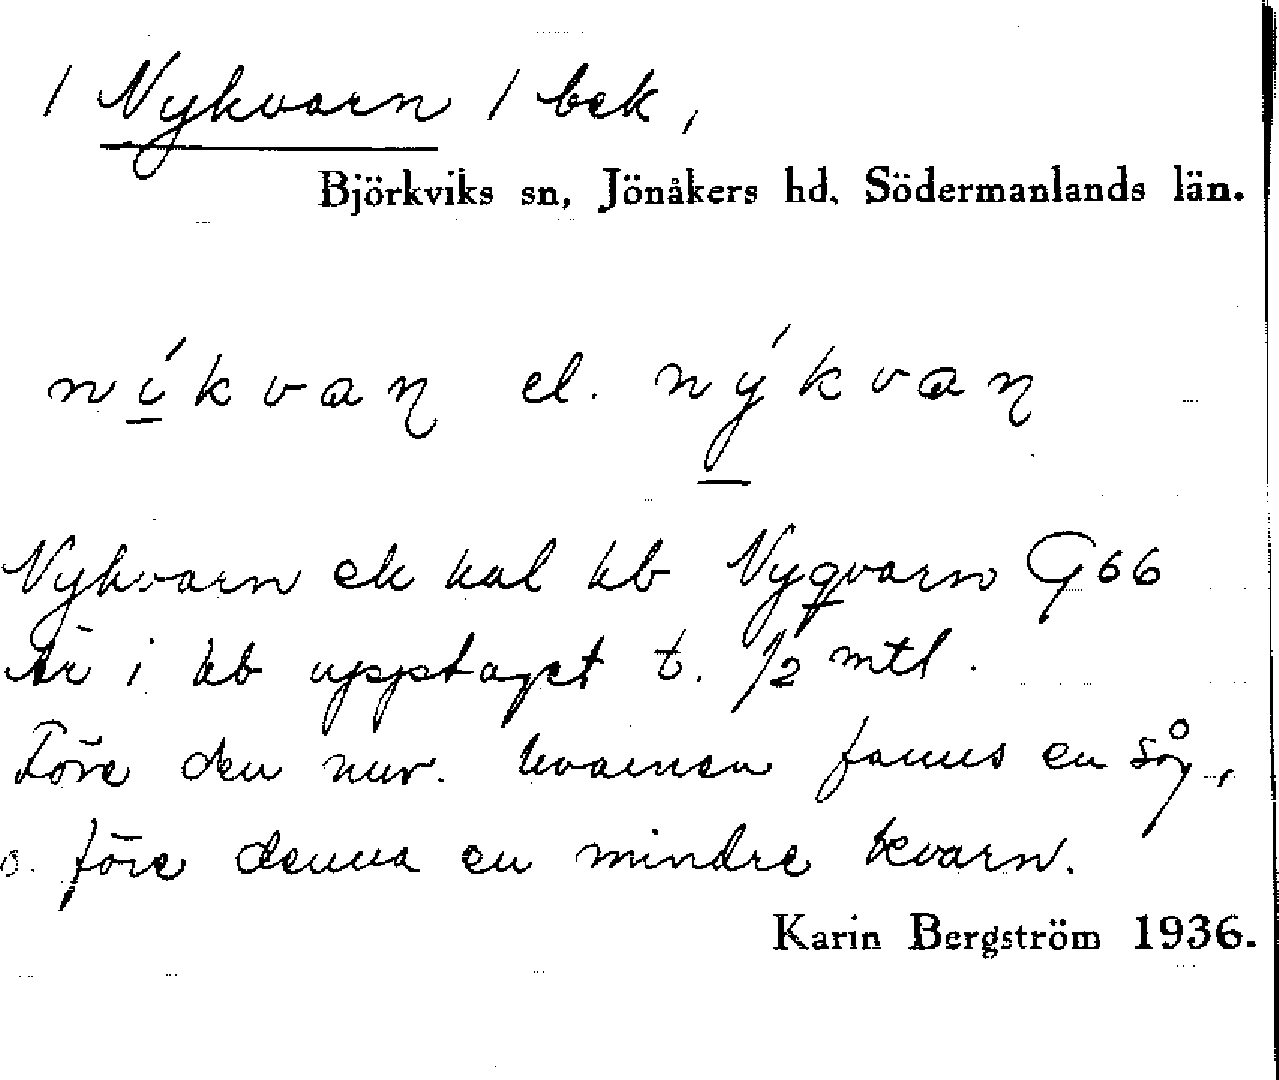 / Nykvarn / bek,
Björkviks sn, Jönåkers hd, Södermanlands län.
níkvaɳ el. nýkvaɳ
Nykvarn ek kal kb Nyqvarn G66
Är i kb upptaget t. 1/2 mtl.
Före den nuv. kvarnen fanns en såg,
o. före denna en mindre kvarn.
Karin Bergström 1936.